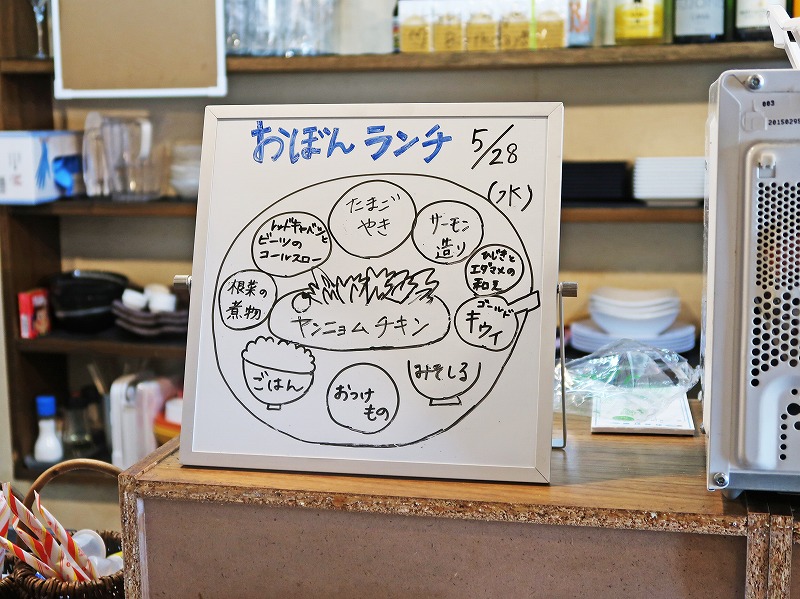 おぼん ランチ 5/28
(水)
たまご
やき
サーモン
造り
レッドキャベツと
ビーツの
コールスロー
ひじきと
エダマメの
和え
根菜の
煮物
ゴールド
キウイ
ヤンニョムチキン
ごはん
おつけ
もの
みそしる
003